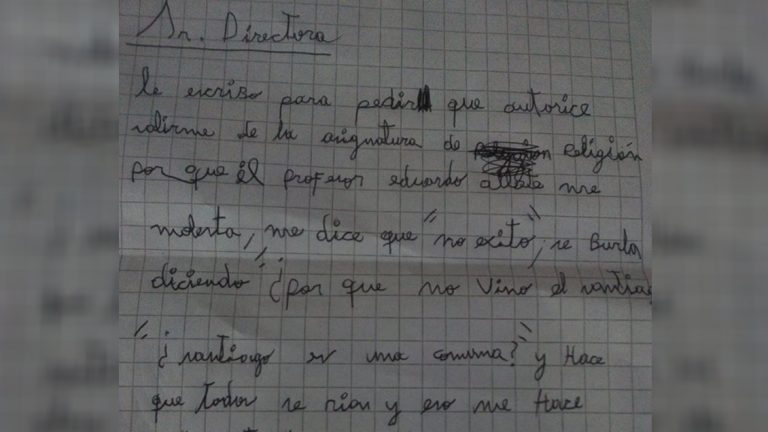 Sr. Directora
le escribo para pedir que autorice
salirme de la asignatura de Religión
por que el profesor eduardo me
molesta, me dice que "no exito", se Burla
diciendo "¿por que no vino el santiag
"¿santiago es una comuna?" y Hace
que todos se rian y eso me Hace